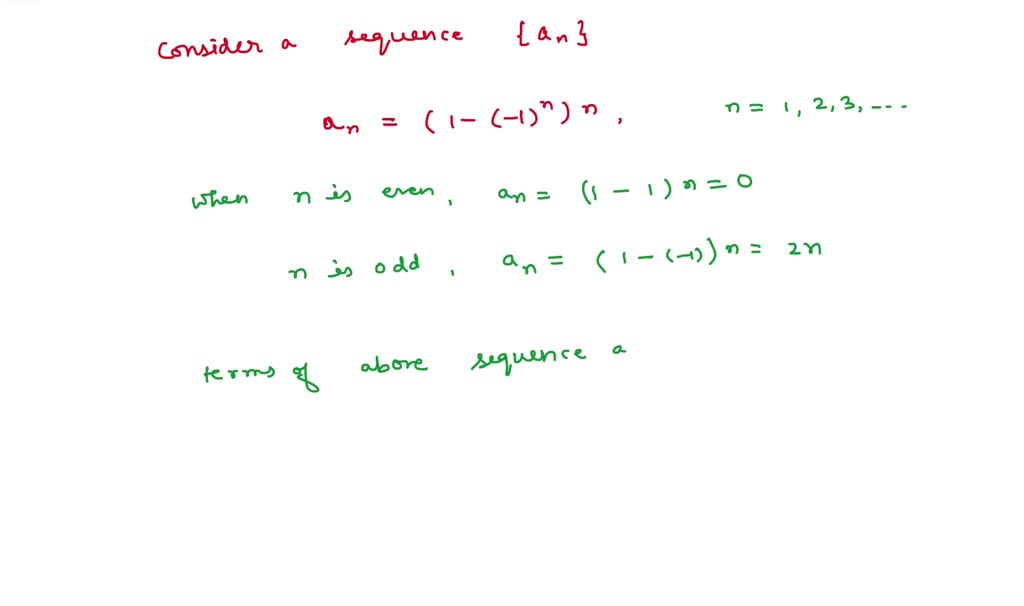 Consider a sequence {aₙ}
aₙ = (1 - (-1)ⁿ) n , n = 1, 2, 3, ---
when n is even, aₙ = (1 - 1) n = 0
n is odd, aₙ = (1 - (-1)) n = 2n
terms of above sequence a